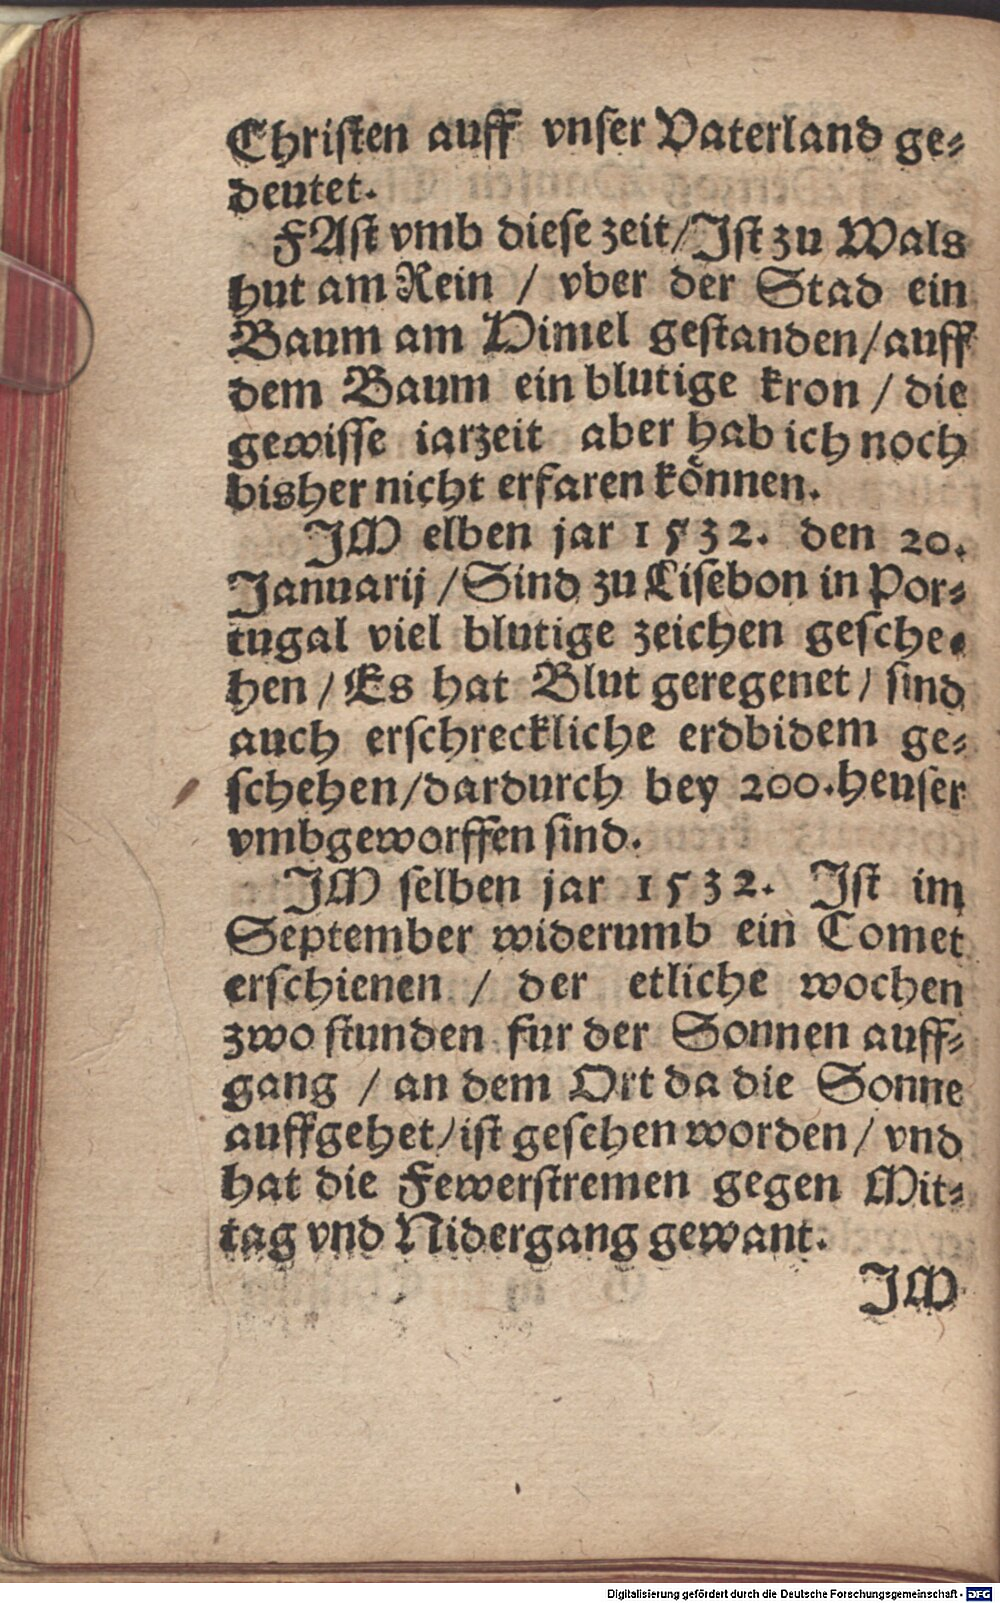 Chriſten auff vnſer Vaterland ge⸗
deutet.
FAſt vmb dieſe zeit/Iſt zu Wals
hut am Rein / vber der Stad ein
Baum am Himel geſtanden/auff
dem Baum ein blutige kron / die
gewiſſe iarzeit aber hab ich noch
bisher nicht erfaren koͤnnen.
IM elben jar 1532. den 20.
Januarij /Sind zu Liſebon in Por⸗
tugal viel blutige zeichen geſche⸗
hen / Es hat Blut geregenet / ſind
auch erſchreckliche erdbidem ge⸗
ſchehen/dardurch bey 200.heuſer
vmbgeworffen ſind.
IM ſelben jar 1532. Iſt im
September widerumb ein Comet
erſchienen / der etliche wochen
zwo ſtunden fur der Sonnen auff⸗
gang / an dem Ort da die Sonne
auffgehet/iſt geſehen worden / vnd
hat die Fewerſtremen gegen Mit⸗
tag vnd Nidergang gewant.
IM
Digitalisierung gefördert durch die Deutsche Forschungsgemeinschaft - DFG